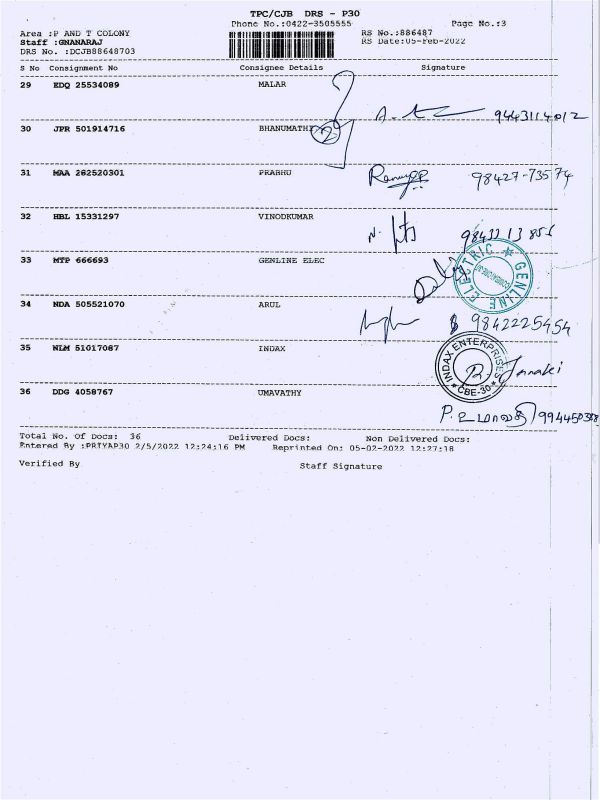 TPC/CJB DRS - P30
Phone No.:0422-3505555 Page No.:3
Area :P AND T COLONY RS No.:886487
Staff :GNANARAJ RS Date:05-Feb-2022
DRS No. :DCJB88648703
S No Consignment No Consignee Details Signature
29 EDQ 25534089 MALAR
9443114012
30 JPR 501914716 BHANUMATHI
31 MAA 262520301 PRABHU
98427-73574
32 HBL 15331297 VINODKUMAR
33 MTP 666693 GENLINE ELEC
GENLINE ELECTRIC
34 NDA 505521070 ARUL
9842225454
35 NLM 51017087 INDAX
INDAX ENTERPRISES
CBE-30
36 DDG 4058767 UMAVATHY
P. உமாவதி
Total No. Of Docs: 36 Delivered Docs: Non Delivered Docs:
Entered By :PRIYAP30 2/5/2022 12:24:16 PM Reprinted On: 05-02-2022 12:27:18
Verified By Staff Signature